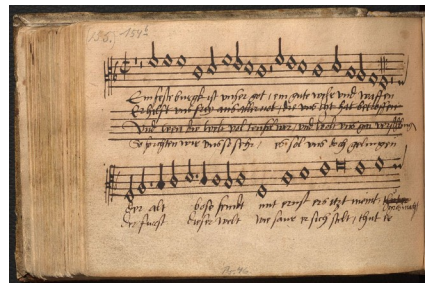 Ein feste burgk ist unser got, ein gute wehr und waffen
Er hilfft uns frey aus aller not, die uns itzt hat betroffen
Und wen die welt vol teufel wer, und wolt uns gar
So furchten wir uns so sehr, es sol uns doch gelingen
der alt bose feindt mit ernst ers itzt meint,
der furst dieser welt wie saur er sich stelt, thut